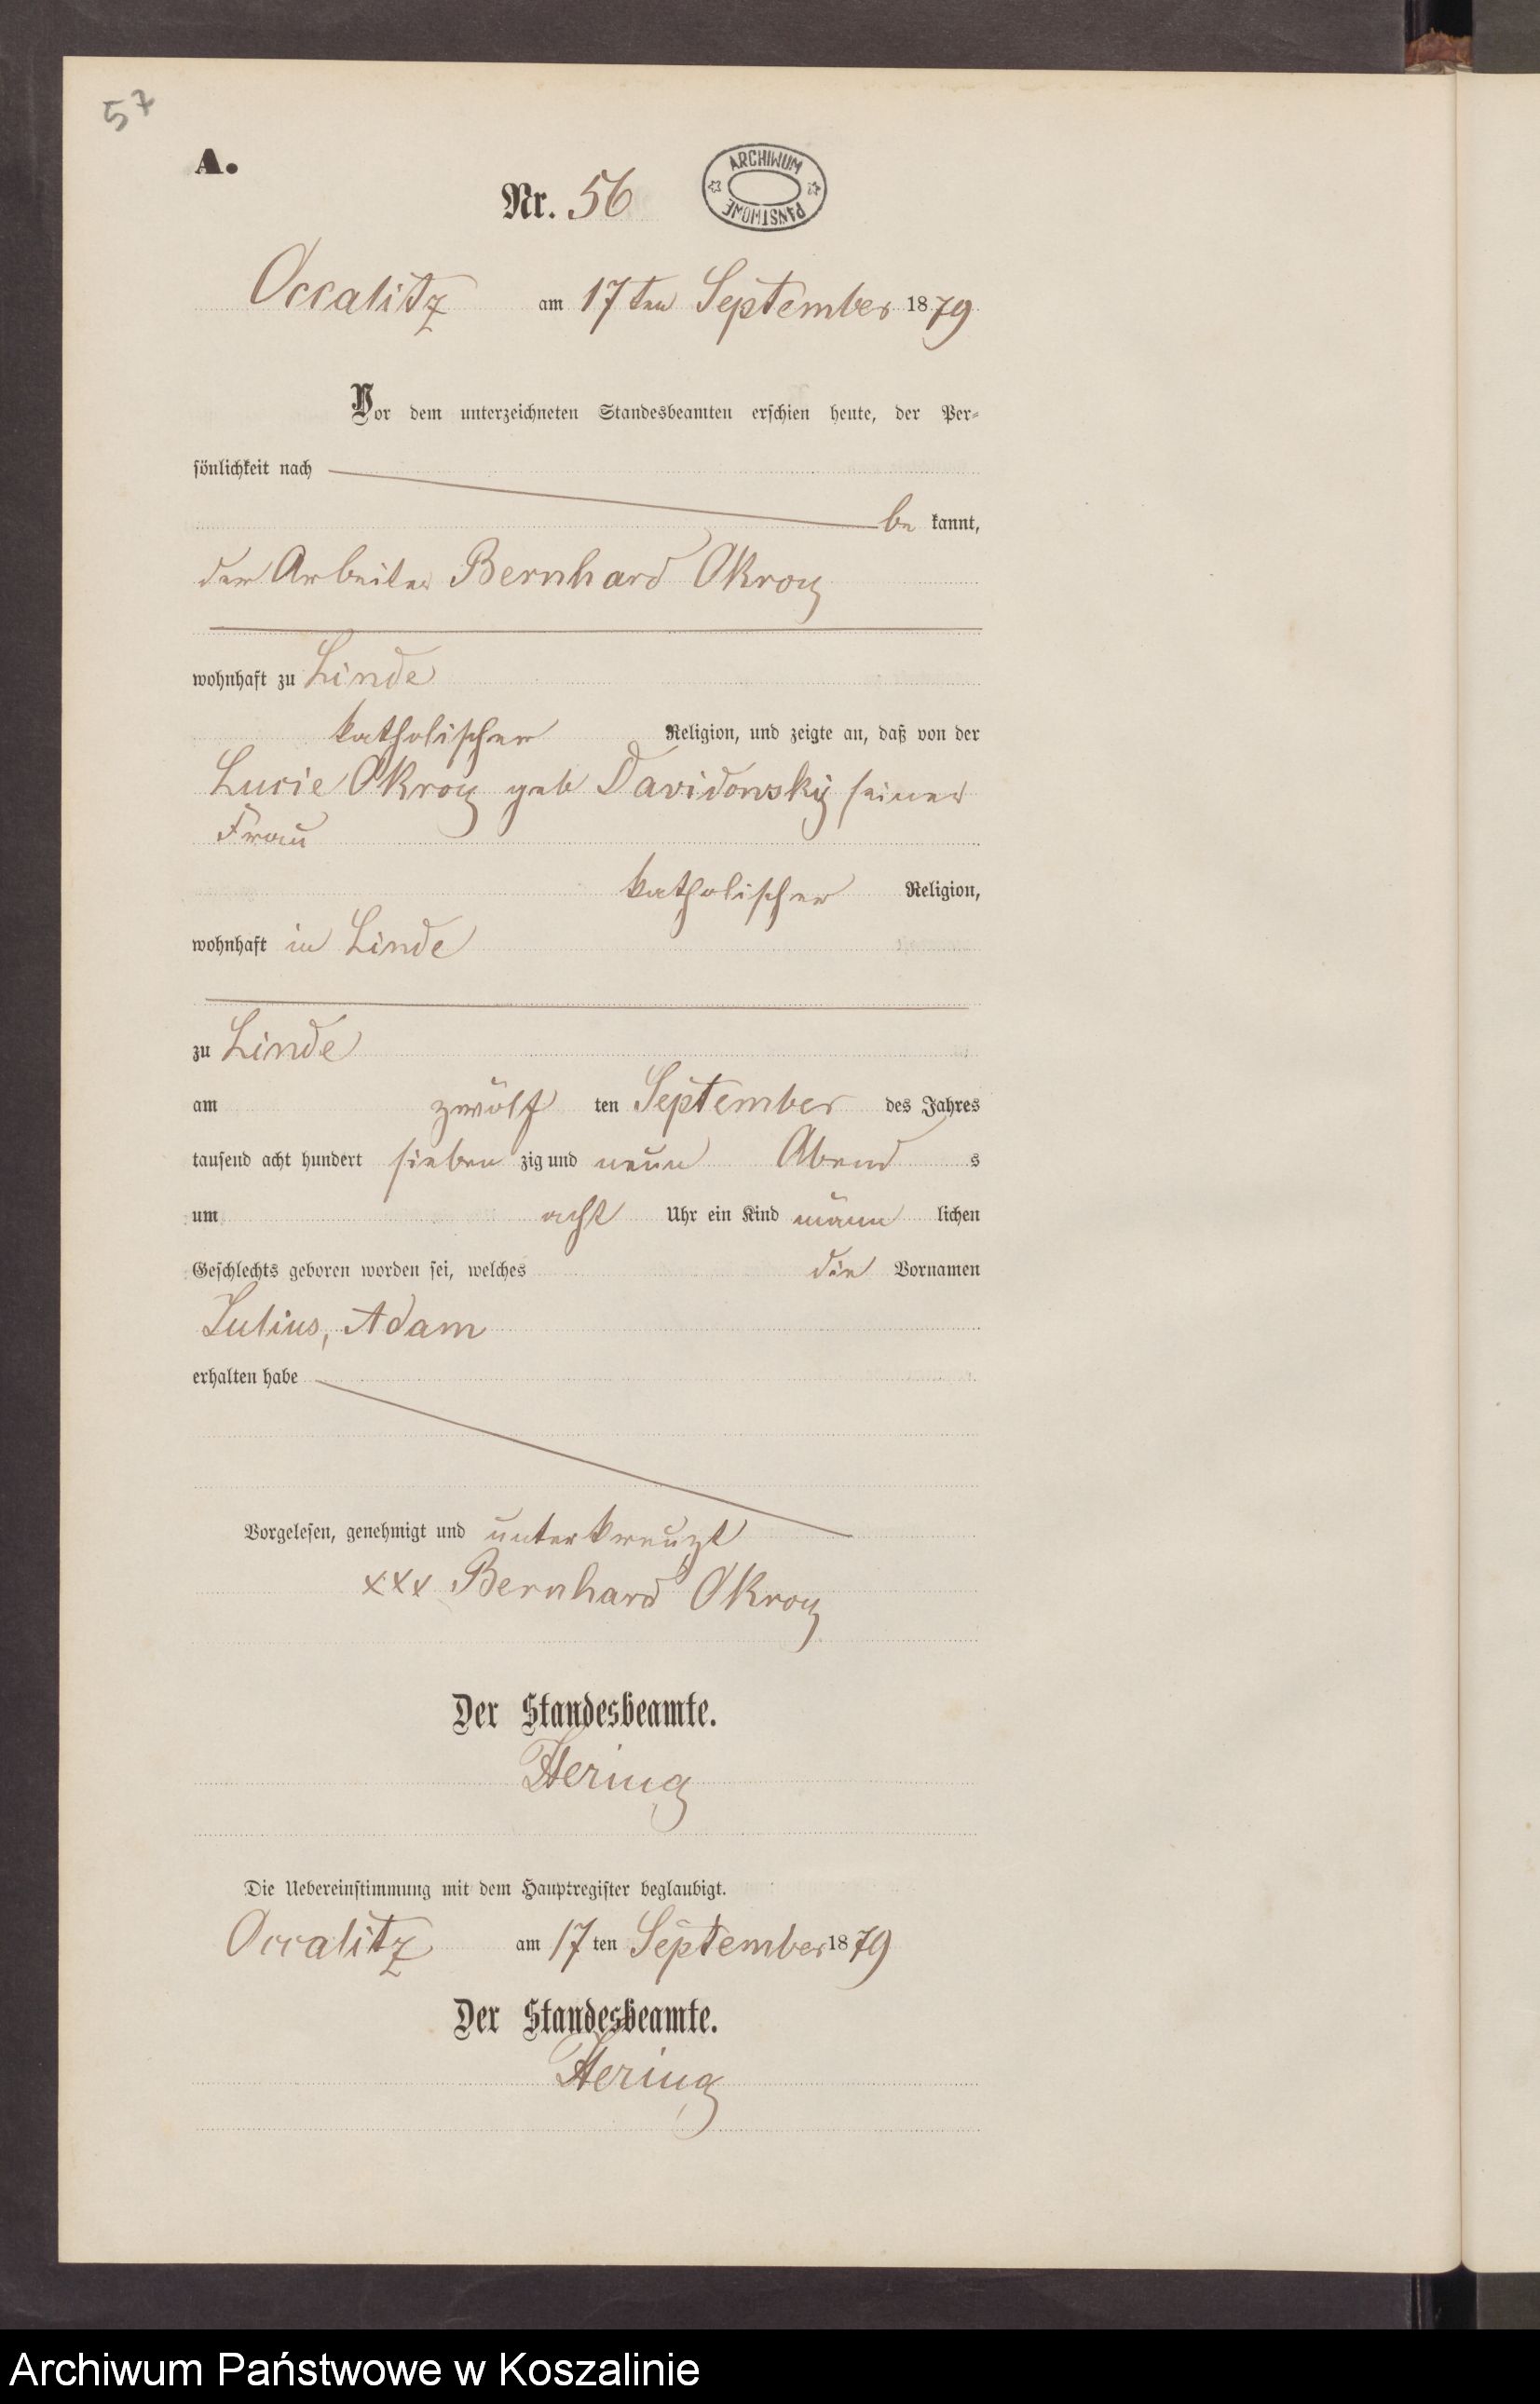 57
A.
Nr. 56
ARCHIWUM PAŃSTWOWE
Occalitz am 17ten September 1879
Vor dem unterzeichneten Standesbeamten erschien heute, der Per-
sönlichkeit nach
be kannt,
der Arbeiter Bernhard Okroy
wohnhaft zu Linde
katholischer Religion, und zeigte an, daß von der
Lucie Okroy geb Davidowsky seiner
Frau
katholischer Religion,
wohnhaft in Linde
zu Linde
am zwölf ten September des Jahres
tausend acht hundert sieben zig und neun Abend s
um acht Uhr ein Kind männ lichen
Geschlechts geboren worden sei, welches die Vornamen
Julius, Adam
erhalten habe
Vorgelesen, genehmigt und unterkreuzt
xxx Bernhard Okroy
Der Standesbeamte.
Hering
Die Uebereinstimmung mit dem Hauptregister beglaubigt.
Occalitz am 17 ten September 1879
Der Standesbeamte.
Hering
Archiwum Państwowe w Koszalinie